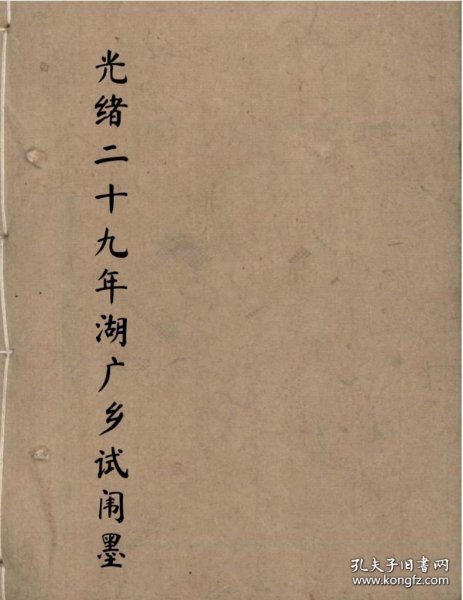 光绪二十九年湖广乡试闱墨
孔夫子旧书网
www.kongfz.com